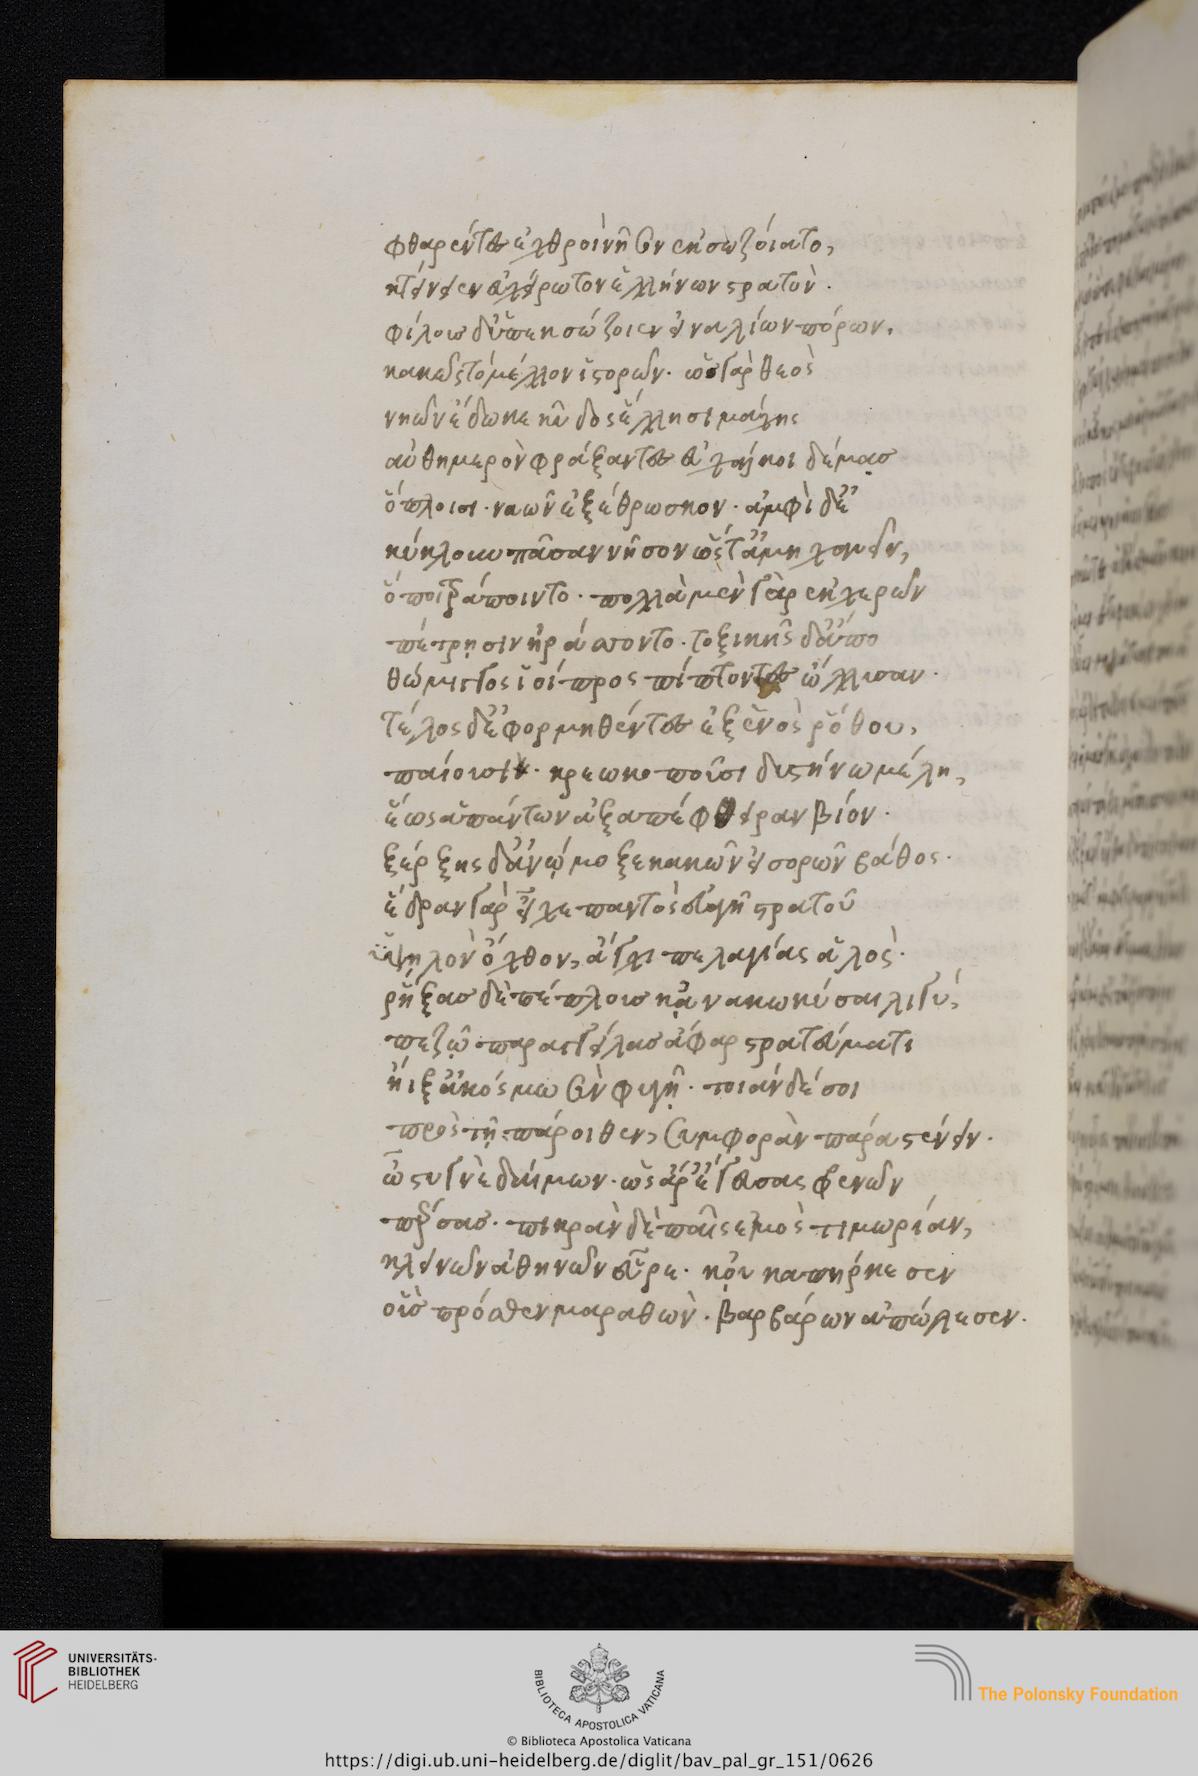 φθαρέντες ἐχθροὶ νῆσον ἐκσωζοίατο,
κτείνειεν εὐχείρωτον ἑλλήνων στρατόν.
φίλους δ᾽ ὑπεκσώζοιεν ἐναλίων πόρων,
κακῶς τὸ μέλλον ἱστορῶν. ὡς γὰρ θεὸς
νηῶν ἔδωκε κῦδος ἕλλησι μάχης
αὐθημερὸν φράξαντες εὐχάλκοι δέμας
ὅπλοισι. ναῶν ἐξέθρωσκον. ἀμφὶ δὲ
κύκλουν πᾶσαν νῆσον ὥστ᾽ ἀμηχανεῖν,
ὅποι τράποιντο. πολλὰ μὲν γὰρ ἐκ χερῶν
πέτρῃσιν ἠράσσοντο. τοξικῆς δ᾽ ἀπὸ
θώμιγγος ἰοί προσπίπτοντες ὤλλυσαν.
τέλος δ᾽ ἐφορμηθέντες ἐξ ἑνὸς ῥόθου,
παίουσι. κρεωκοποῦσι δυστήνων μέλη,
ἕως ἁπάντων ἐξαπέφθειραν βίον.
ξέρξης δ᾽ ἀνῴμοξε κακῶν ὁρῶν βάθος.
ἕδραν γὰρ εἶχε παντὸς εὐαγῆ στρατοῦ
ὑψηλὸν ὄχθον, ἄγχι πελαγίας ἁλός.
ῥήξας δὲ πέπλους κἀνακωκύσας λιγύ,
πεζῷ παραγγείλας ἄφαρ στρατεύματι
ἤιξ᾽ ἀκόσμω σὺν φυγῇ. τοιάνδέ σοι
πρὸς τῇ πάροιθεν, συμφορὰν πάρα στένειν.
ὦ στυγνὲ δαῖμον. ὡς ἄρ᾽ ἔψευσας φρενῶν
πέρσας. πικρὰν δὲ παῖς ἐμὸς τιμωρίαν,
κλεινῶν ἀθηνῶν εὗρε. κοὐκ ἀπήρκεσεν
οὓς πρόσθεν μαραθὼν. βαρβάρων ἀπώλεσεν.
UNIVERSITÄTS-
BIBLIOTHEK
HEIDELBERG
BIBLIOTECA APOSTOLICA VATICANA
The Polonsky Foundation
© Biblioteca Apostolica Vaticana
https://digi.ub.uni-heidelberg.de/diglit/bav_pal_gr_151/0626